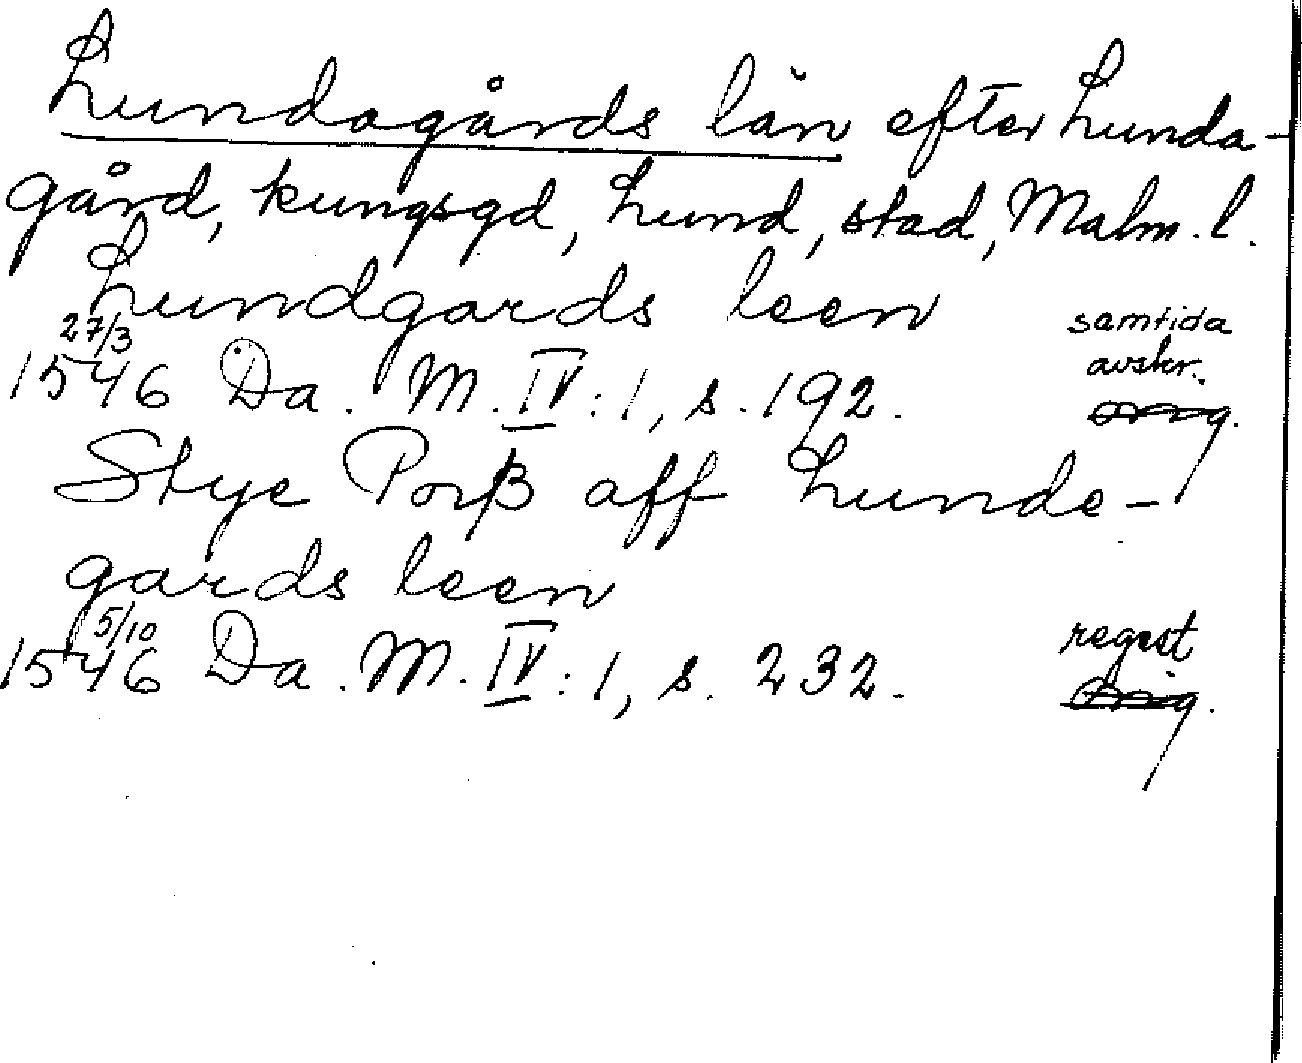 Lundagårds län efter Lunda-
gård, kungsgd, Lund, stad, Malm. l.
Lundgards leen
27/3
samtida
avskr.
1546 Da. M. IV:1, s. 192. orig.
Stye Porß aff Lunde-
gards leen
5/10
regest
1546 Da. M. IV:1, s. 232. orig.